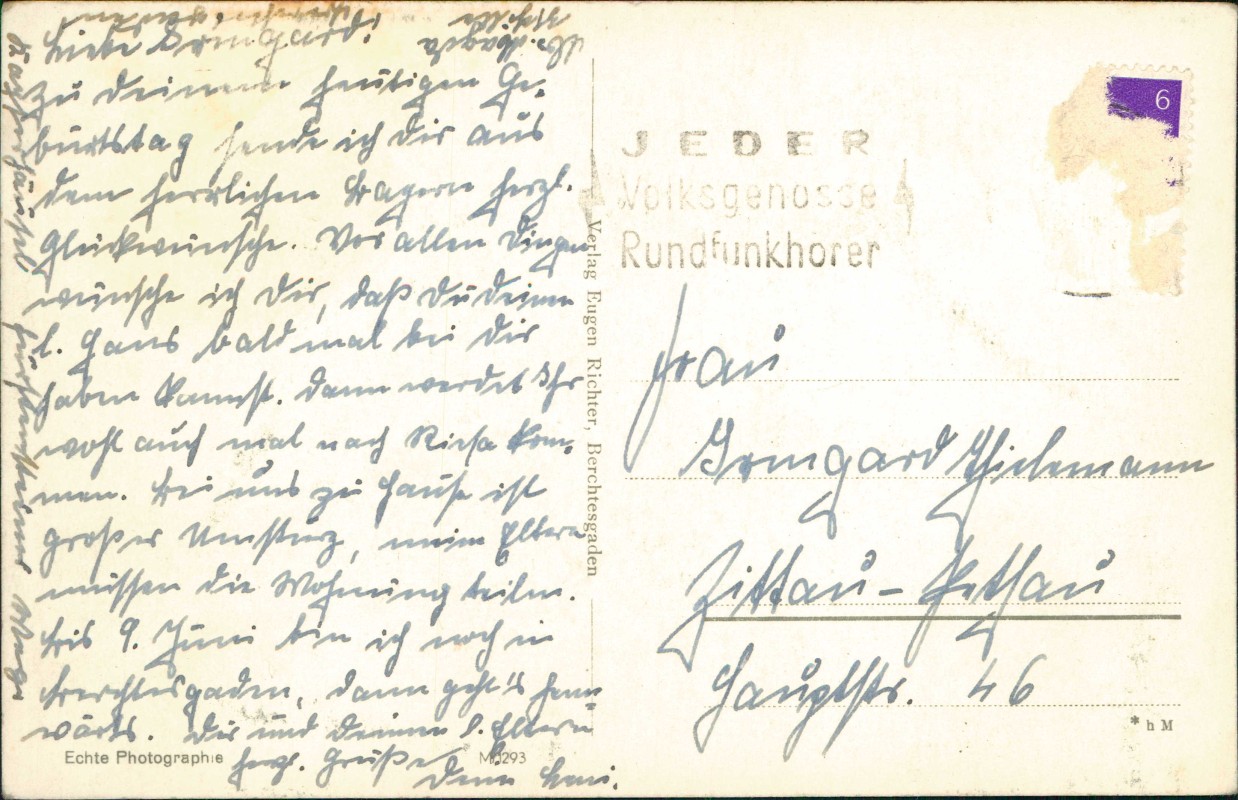 Liebe Irmgard!
Zu Deinem heutigen Ge-
burtstag sende ich Dir aus
dem herrlichen Bayern herzl.
Glückwünsche. Vor allen Dingen
wünsche ich Dir, daß Du Deinen
l. Hans bald mal bei Dir
haben kannst. Dann werdet Ihr
wohl auch mal nach Riesa kom-
men. Bei uns zu Hause ist
großer Umsturz, meine Eltern
müssen die Wohnung teilen.
Bis 9. Juni bin ich noch in
Berchtesgaden, dann geht's heim-
wärts. Dir und Deinen l. Eltern
herzl. Grüße
Deine
Echte Photographie
M 1293
Verlag Eugen Richter, Berchtesgaden
6
JEDER
Volksgenosse
Rundfunkhörer
Frau
Irmgard Thielemann
Zittau-Pethau
Hauptstr. 46
* h M